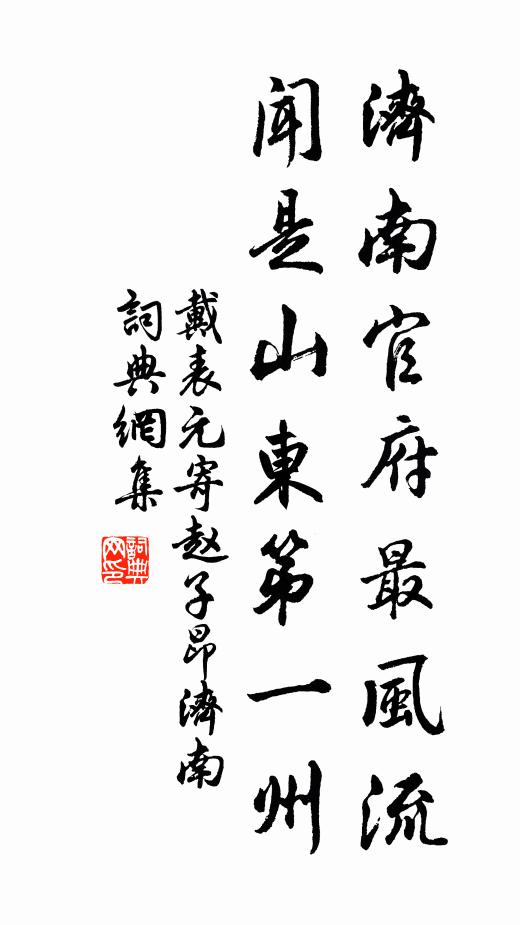 濟南官府最風流
聞是山東第一州
戴表元寄赵子昂濟南
詞典網集
詞典网印